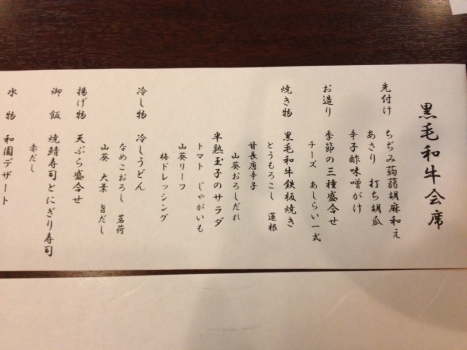 黒毛和牛会席
先付け ちぢみ蒟蒻胡麻和え
あさり 打ち胡瓜
辛子酢味噌がけ
お造り 季節の三種盛合せ
チーズ あしらい一式
焼き物 黒毛和牛鉄板焼き
とうもろこし 蓮根
甘長唐辛子
山葵おろしだれ
半熟玉子のサラダ
トマト じゃがいも
山葵リーフ
梅ドレッシング
冷し物 冷しうどん
なめこおろし 茗荷
山葵 大葉 旨だし
揚げ物 天ぷら盛合せ
御飯 焼鯖寿司とにぎり寿司
赤だし
水物 和園デザート